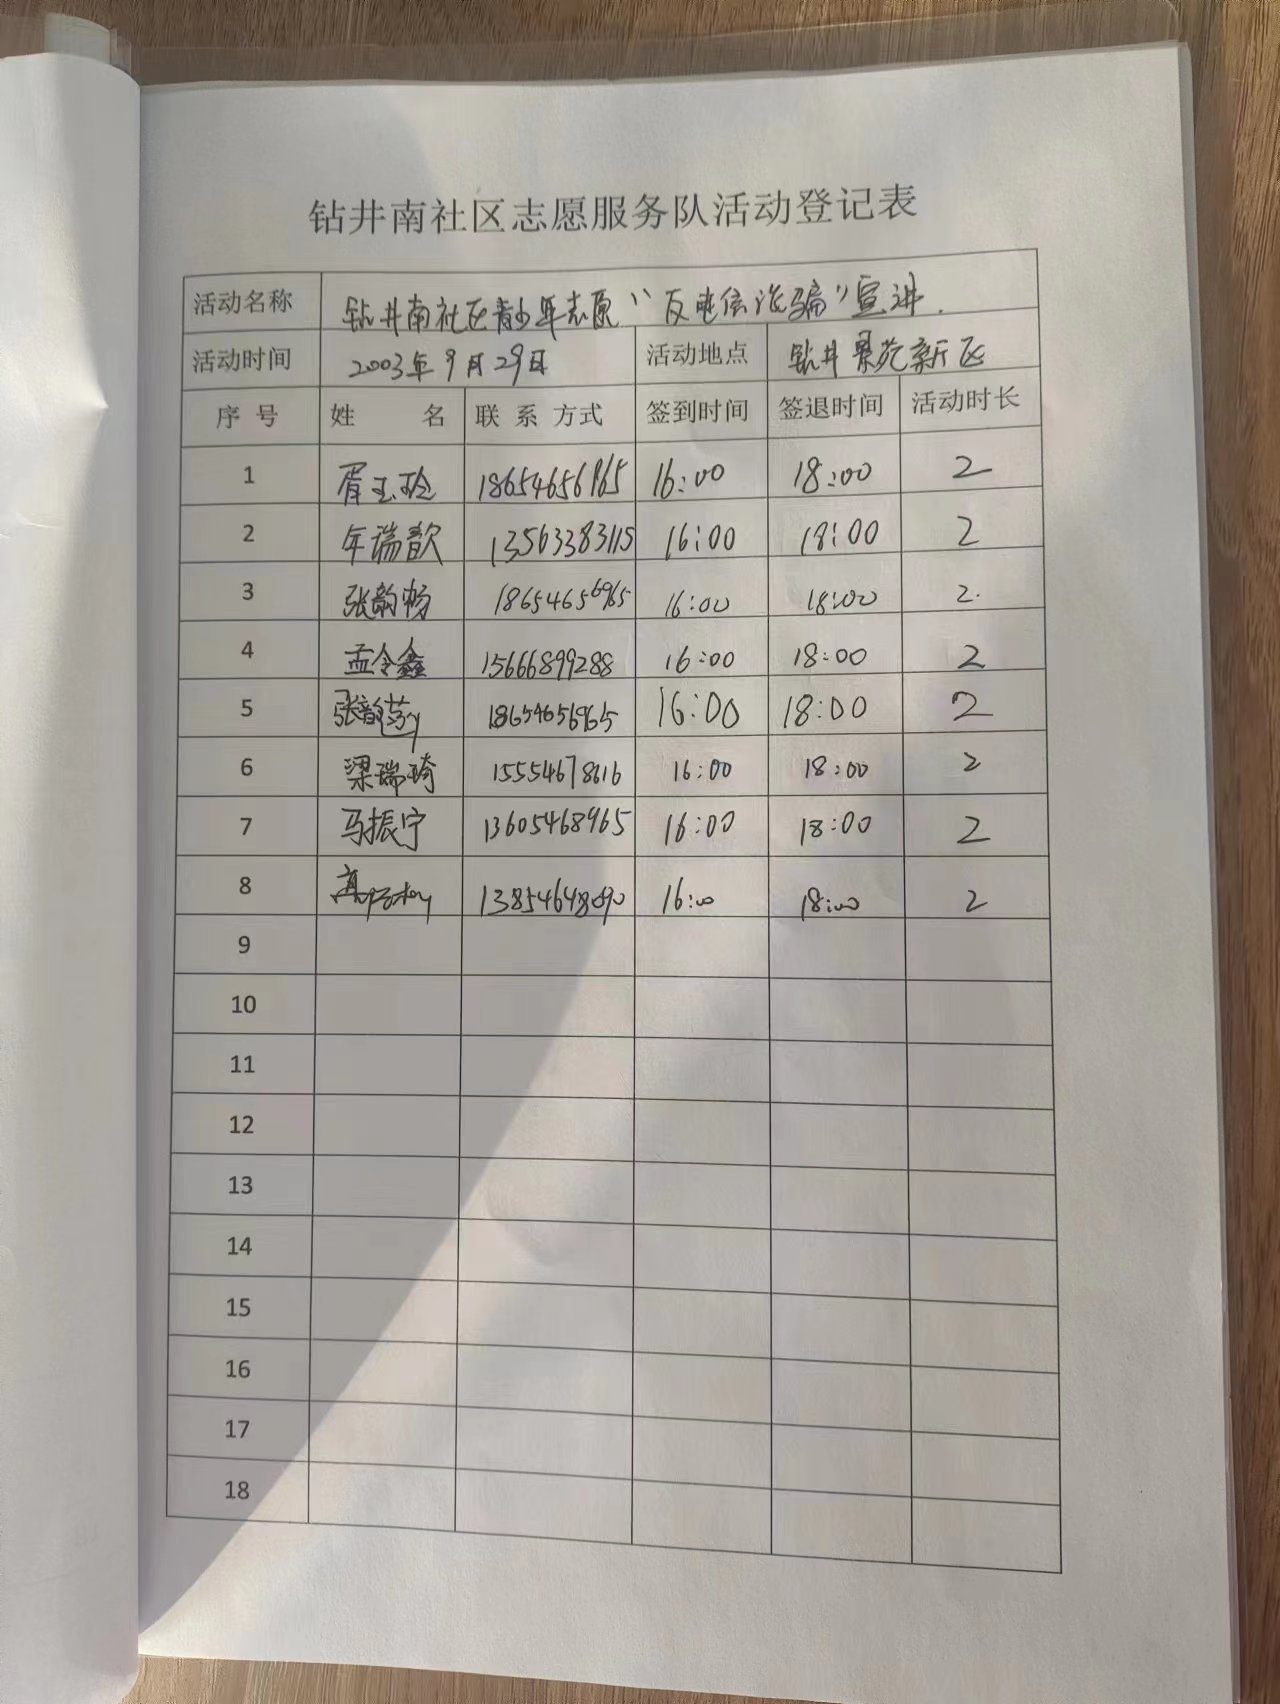 钻井南社区志愿服务队活动登记表
活动名称 钻井南社区青少年志愿“反电信诈骗”宣讲.
活动时间 2003年9月29日 活动地点 钻井景苑新区
序号 姓名 联系方式 签到时间 签退时间 活动时长
1 胥玉玲 18654656965 16:00 18:00 2
2 年瑞歆 13563383115 16:00 18:00 2
3 张韵畅 18654656965 16:00 18:00 2.
4 孟令鑫 15666899288 16:00 18:00 2
5 张韵 18654656965 16:00 18:00 2
6 梁瑞琦 15554678616 16:00 18:00 2
7 马振宁 13605468965 16:00 18:00 2
8 高 13854648090 16:00 18:00 2
9
10
11
12
13
14
15
16
17
18